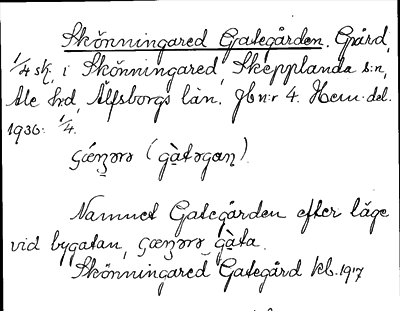 Skönningared Gategården. Gård,
1/4 sk. i Skönningared, Skepplanda s:n,
Ale hd, Älfsborgs län. Jb n:r 4. Hem. del.
1936: 1/4.
(gàtəgaɳ)
Namnet Gategården efter läge
vid bygatan, gàta.
Skönningared Gategård kb. 1917